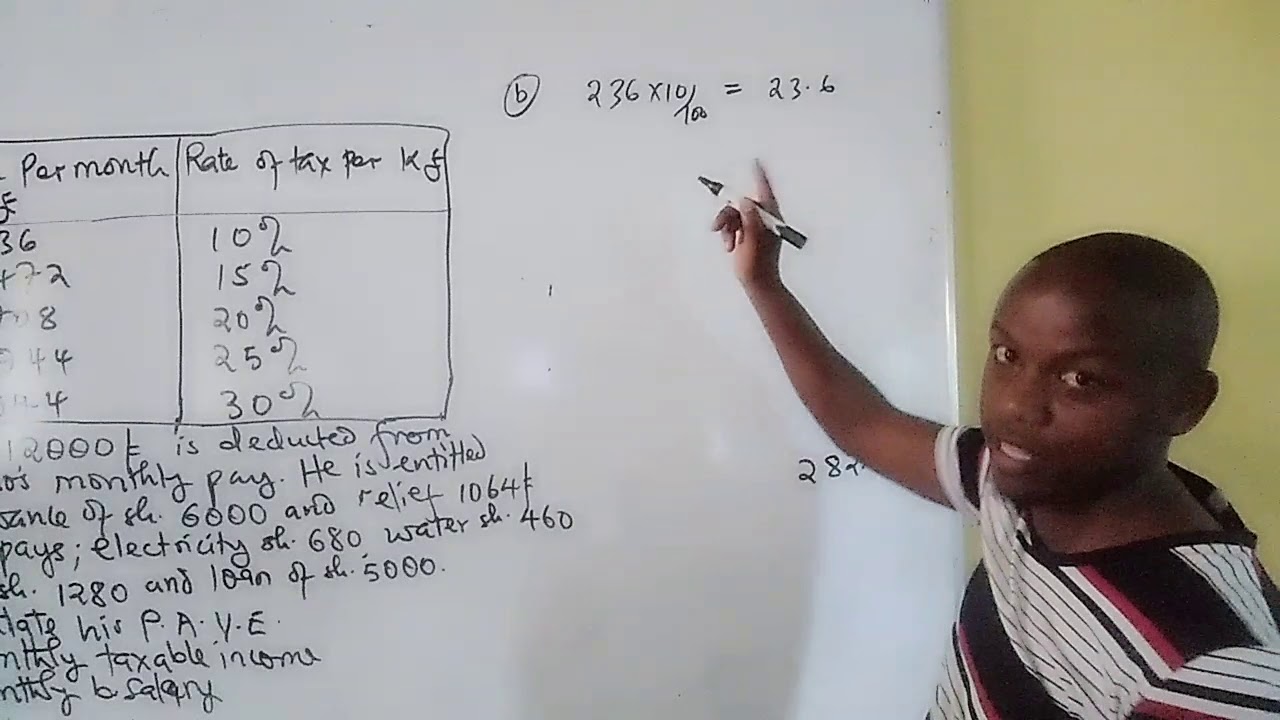 b 236 x 10/100 = 23.6
Per month Rate of tax per K£
£
36 10%
472 15%
708 20%
944 25%
30%
12000/- is deducted from
monthly pay. He is entitled
of sh. 6000 and relief 1064/-
pays; electricity sh. 680 water sh. 460
sh. 1280 and loan of sh. 5000.
his P.A.Y.E.
taxable income
b salary
28